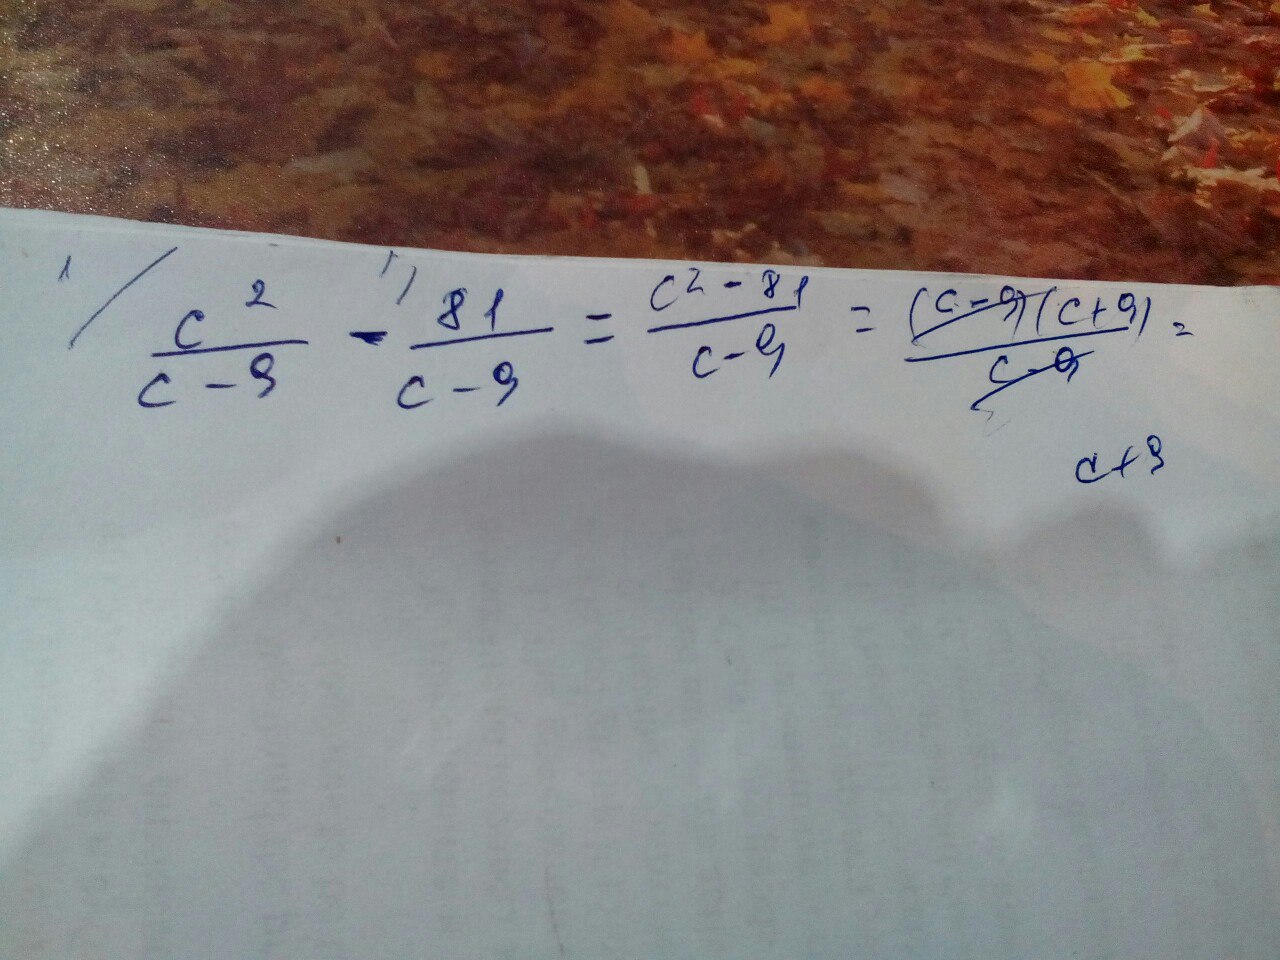 1/ c²/(c-9) - 81/(c-9) = (c²-81)/(c-9) = (c-9)(c+9)/(c-9) =
c+9